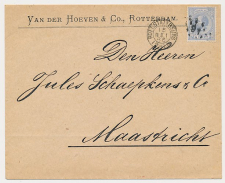 VAN DER HOEVEN & Co., ROTTERDAM.
Den Heeren
Jules Schaepkens & Co
Maastricht